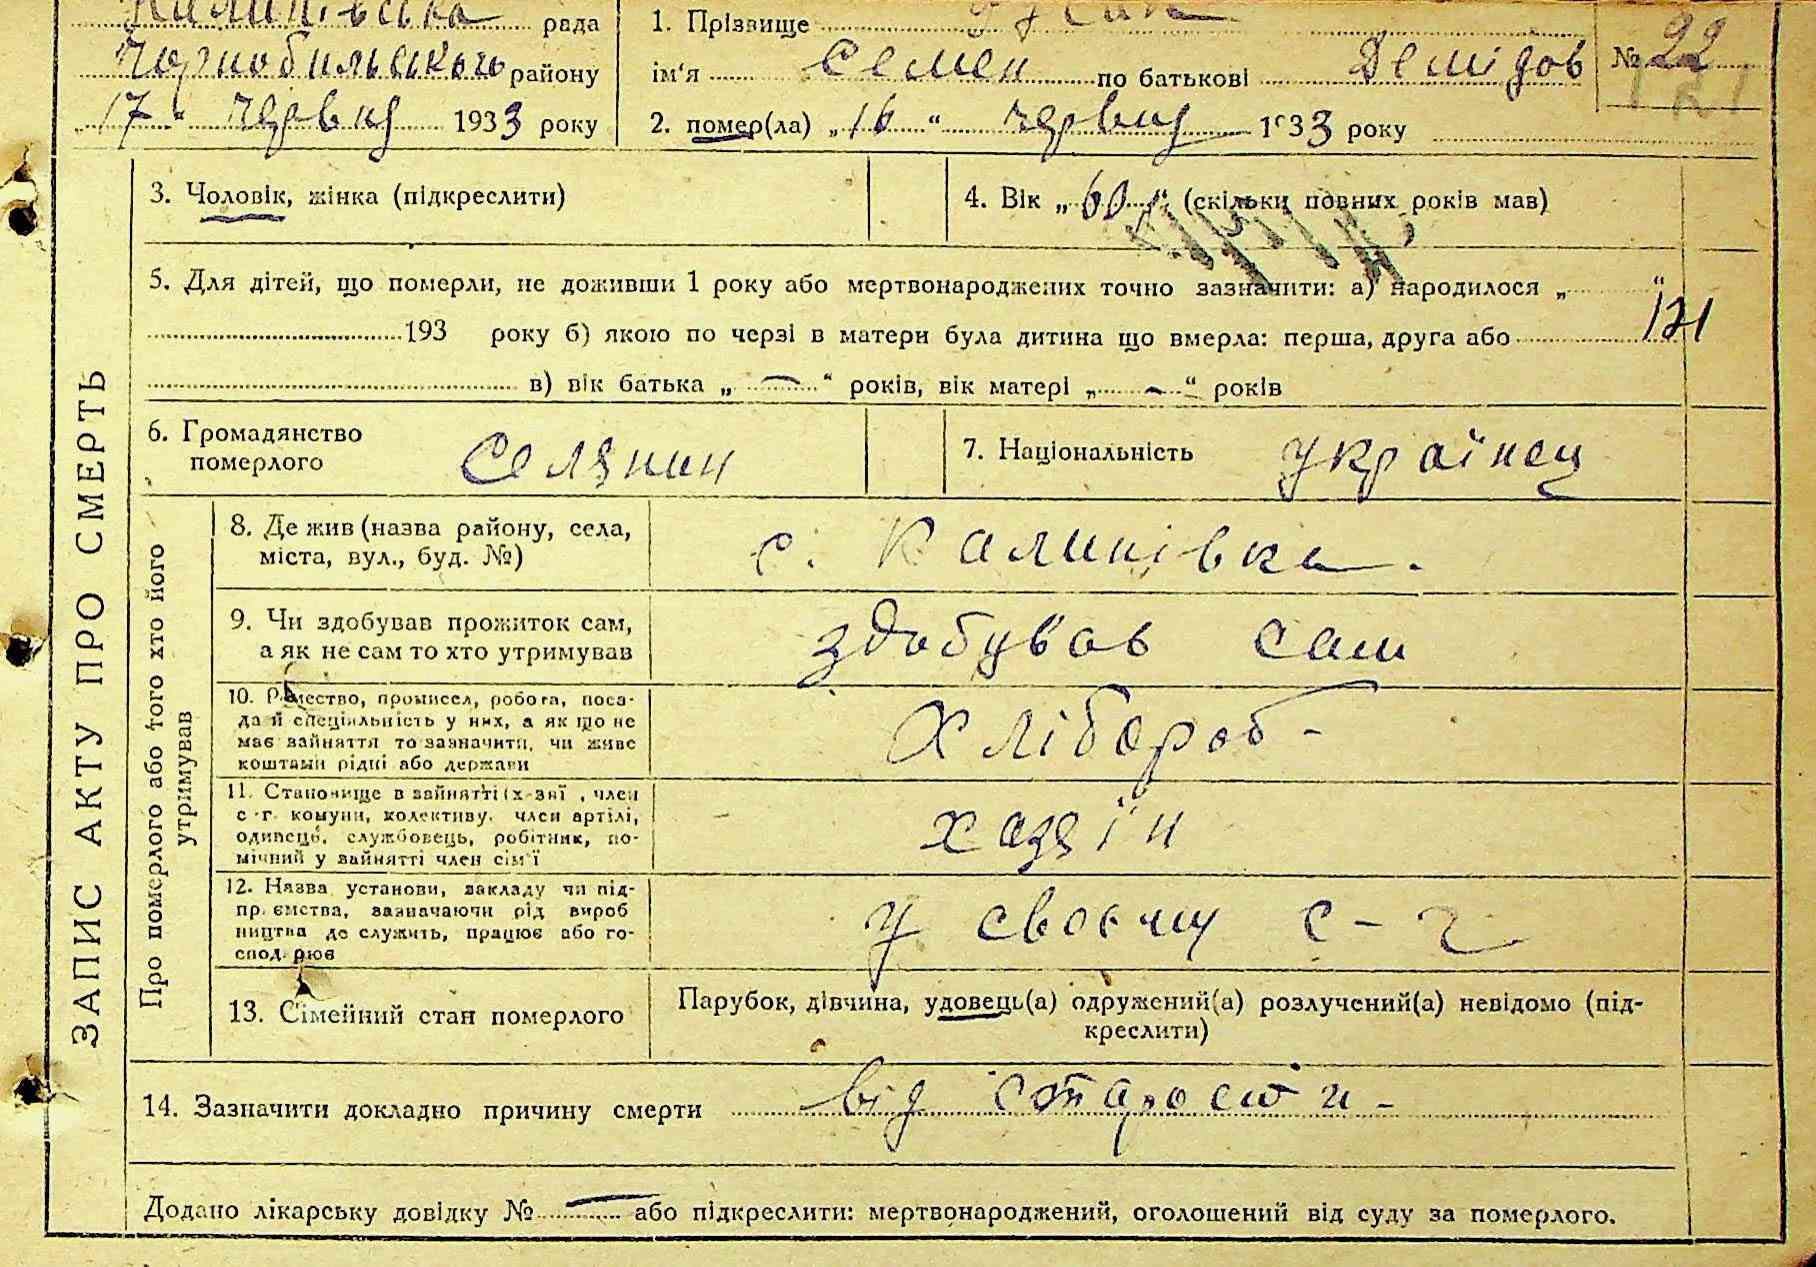 Калинівська рада
Чорнобильського району
„17“ червня 1933 року
1. Прізвище
ім'я Семен по батькові Демідов
№ 22
2. помер(ла) „16“ червня 1933 року
3. Чоловік, жінка (підкреслити)
4. Вік „60“ (скільки повних років мав)
5. Для дітей, що померли, не доживши 1 року або мертвонароджених точно зазначити: а) народилося „ “
193 року б) якою по черзі в матери була дитина що вмерла: перша, друга або
121
в) вік батька „ — “ років, вік матері „ - “ років
6. Громадянство
померлого
Селянин
7. Національність Українец
ЗАПИС АКТУ ПРО СМЕРТЬ
Про померлого або того хто його
утримував
8. Де жив (назва району, села,
міста, вул., буд. №)
с. Калинівка.
9. Чи здобував прожиток сам,
а як не сам то хто утримував
здобував сам
10. Ремество, промисел, робота, поса-
да й спеціяльність у них, а якщо не
має зайняття то зазначити, чи живе
коштами рідні або держави
Хлібороб -
11. Становище в зайнятті (х-зяї , член
с-г. комуни, колективу, член артілі,
одинець, службовець, робітник, по-
мічний у зайнятті член сім'ї
хазяїн
12. Назва установи, закладу чи під-
пр.ємства, зазначаючи рід вироб
ництва де служить, працює або го-
спод.рює
у своєму с-г
13. Сімейний стан померлого
Парубок, дівчина, удовець(а) одружений(а) розлучений(а) невідомо (під-
креслити)
14. Зазначити докладно причину смерти від старости -
Додано лікарську довідку № — або підкреслити: мертвонароджений, оголошений від суду за померлого.